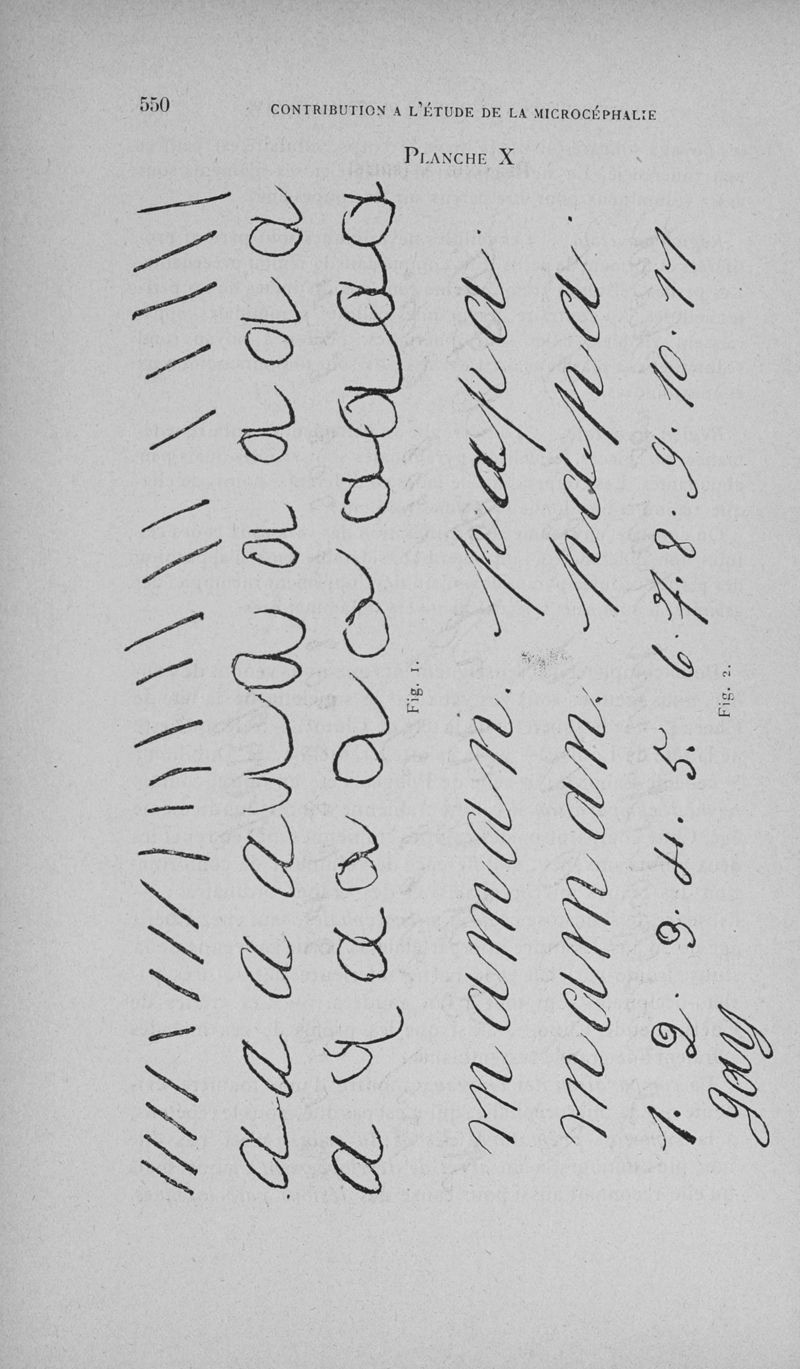 550
CONTRIBUTION A L'ÉTUDE DE LA MICROCÉPHALIE
PLANCHE X
a a a a a a a a a a
a a a a a a a a a a
Fig. 1.
maman. papa.
maman. papa.
1. 2. 3. 4. 5. 6. 7. 8. 9. 10. 11
gay
Fig. 2.